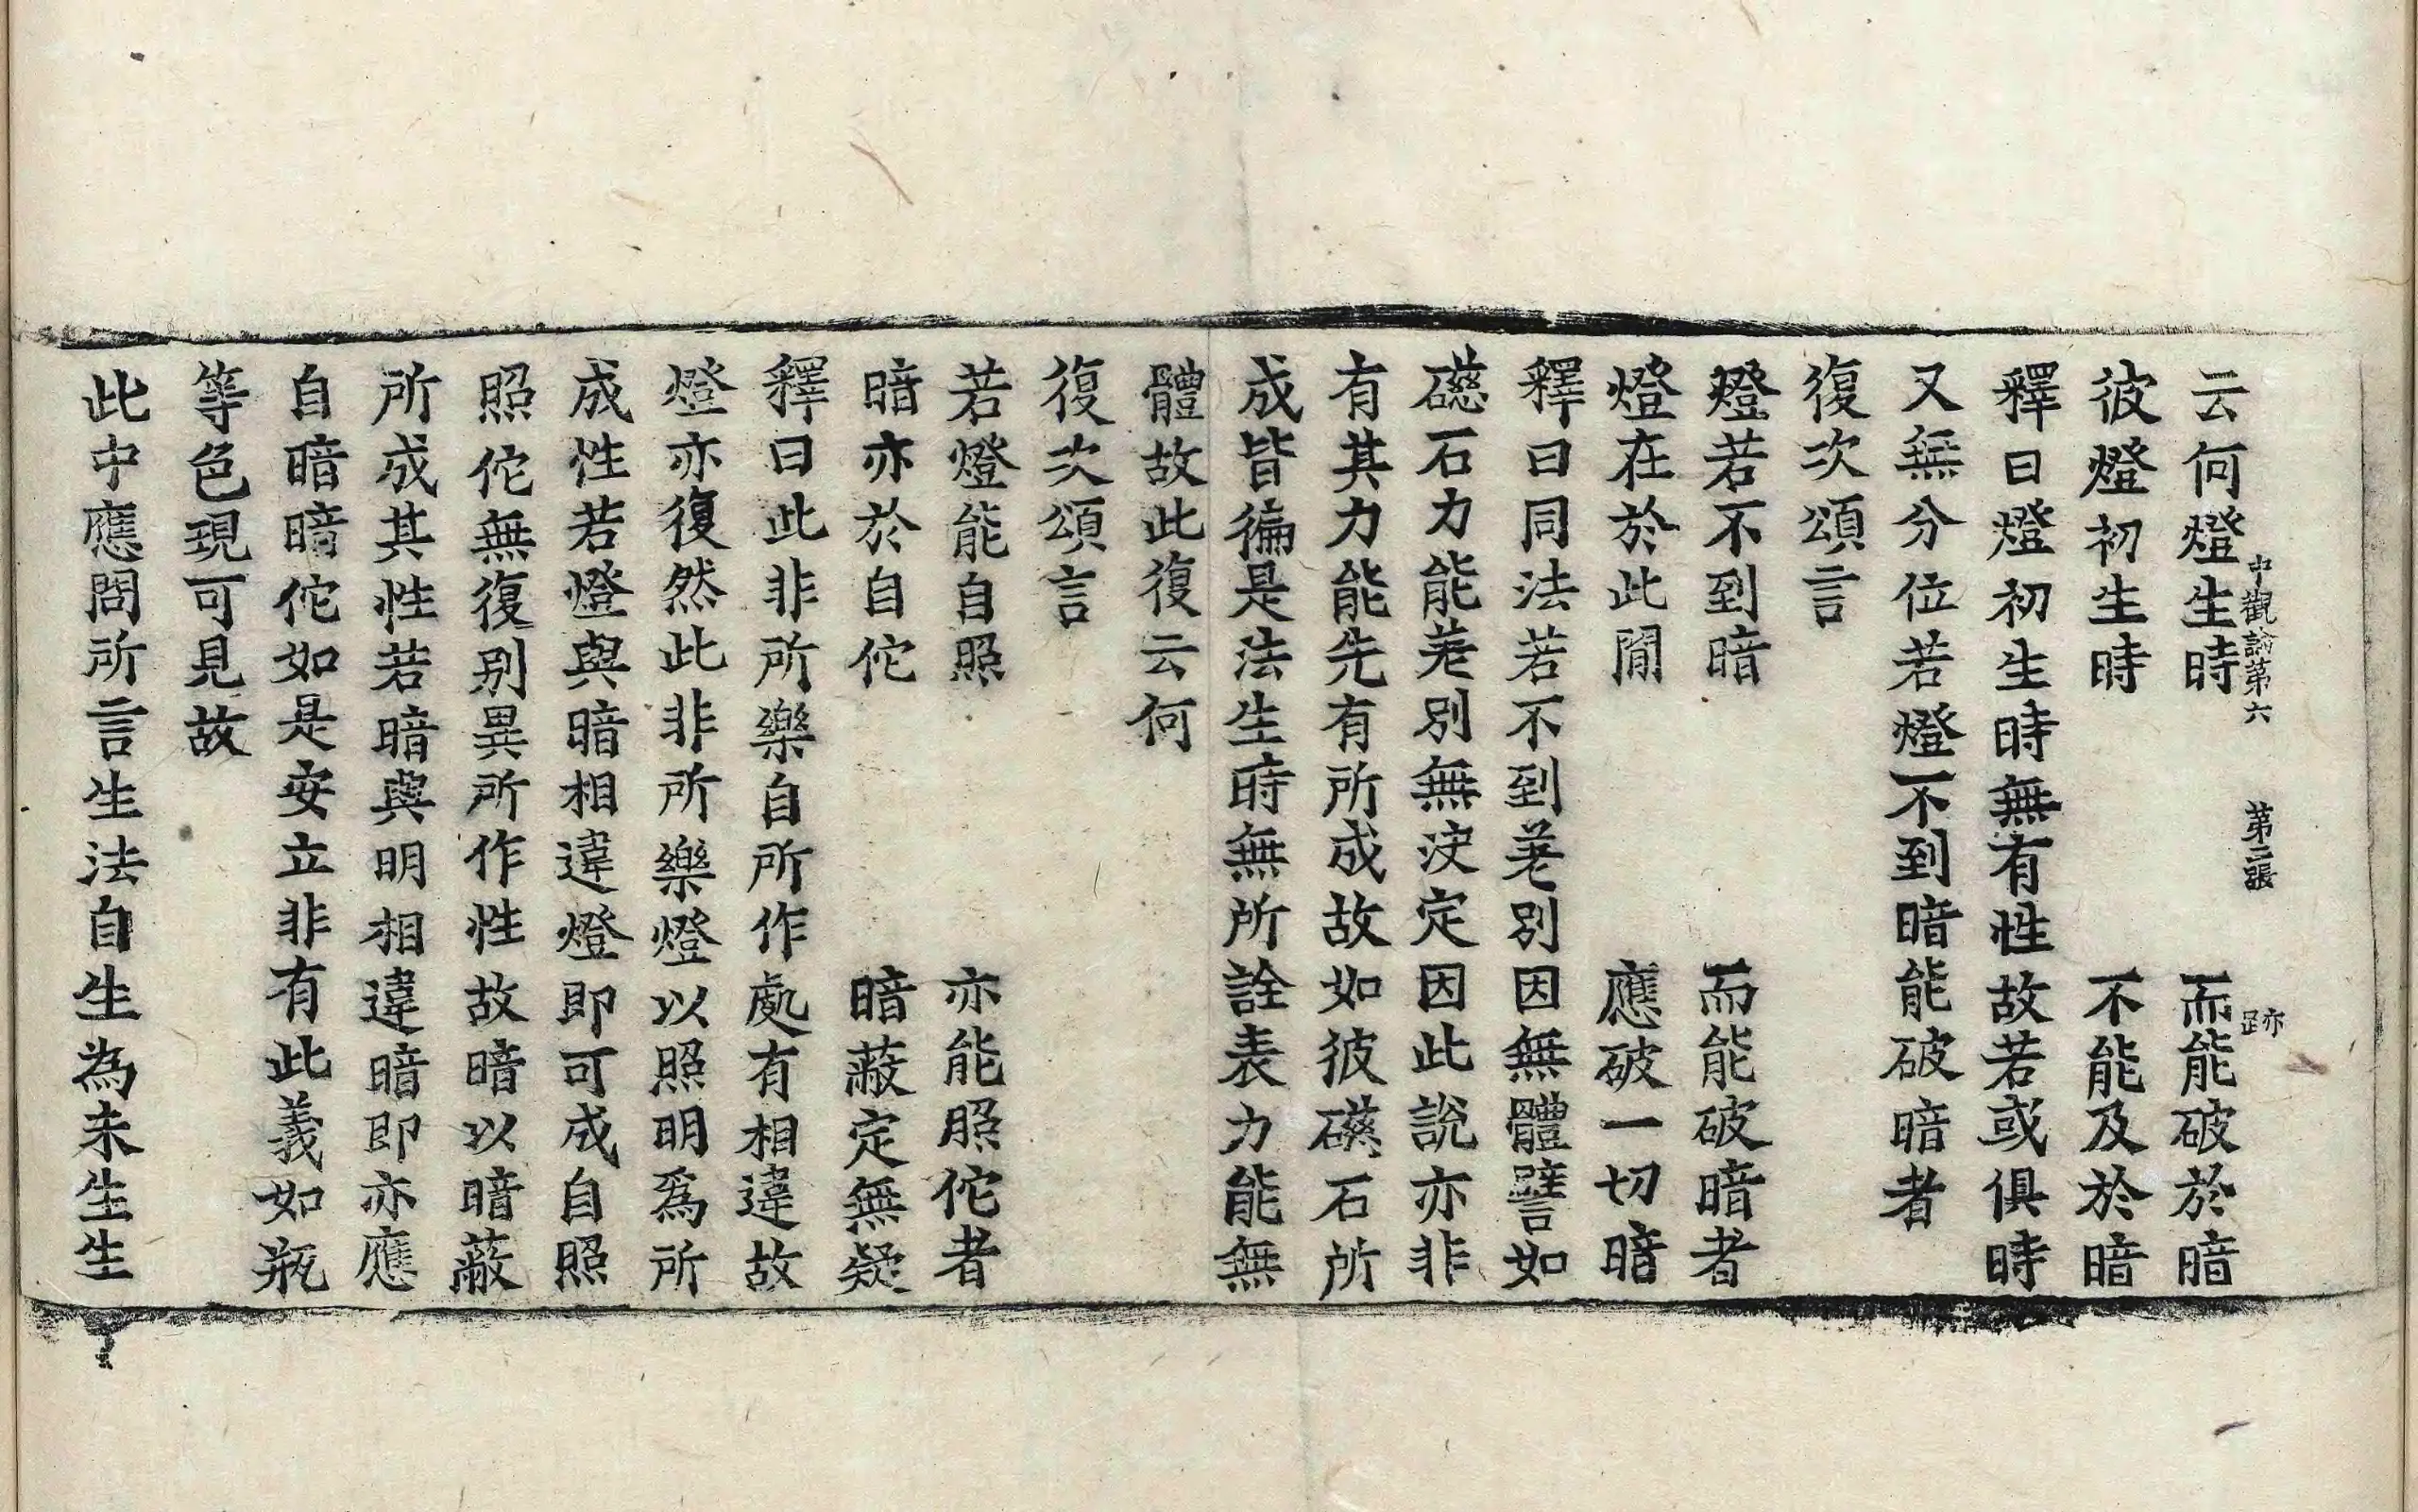 中觀論第六　第二張　跡
云何燈生時　而能破於暗
彼燈初生時　不能及於暗
釋曰燈初生時無有性故若或俱時
又無分位若燈不到暗能破暗者
復次頌言
燈若不到暗　而能破暗者
燈在於此閒　應破一切暗
釋曰同法若不到差別因無體譬如
礠石力能差別無決定因此說亦非
有其力能先有所成故如彼礠石所
成皆徧是法生時無所詮表力能無
體故此復云何
復次頌言
若燈能自照　亦能照佗者
暗亦於自佗　暗蔽定無疑
釋曰此非所樂自所作處有相違故
燈亦復然此非所樂燈以照明爲所
成性若燈與暗相違燈即可成自照
照佗無復別異所作性故暗以暗蔽
所成其性若暗與明相違暗即亦應
自暗暗佗如是安立非有此義如瓶
等色現可見故
此中應問所言生法自生為未生生